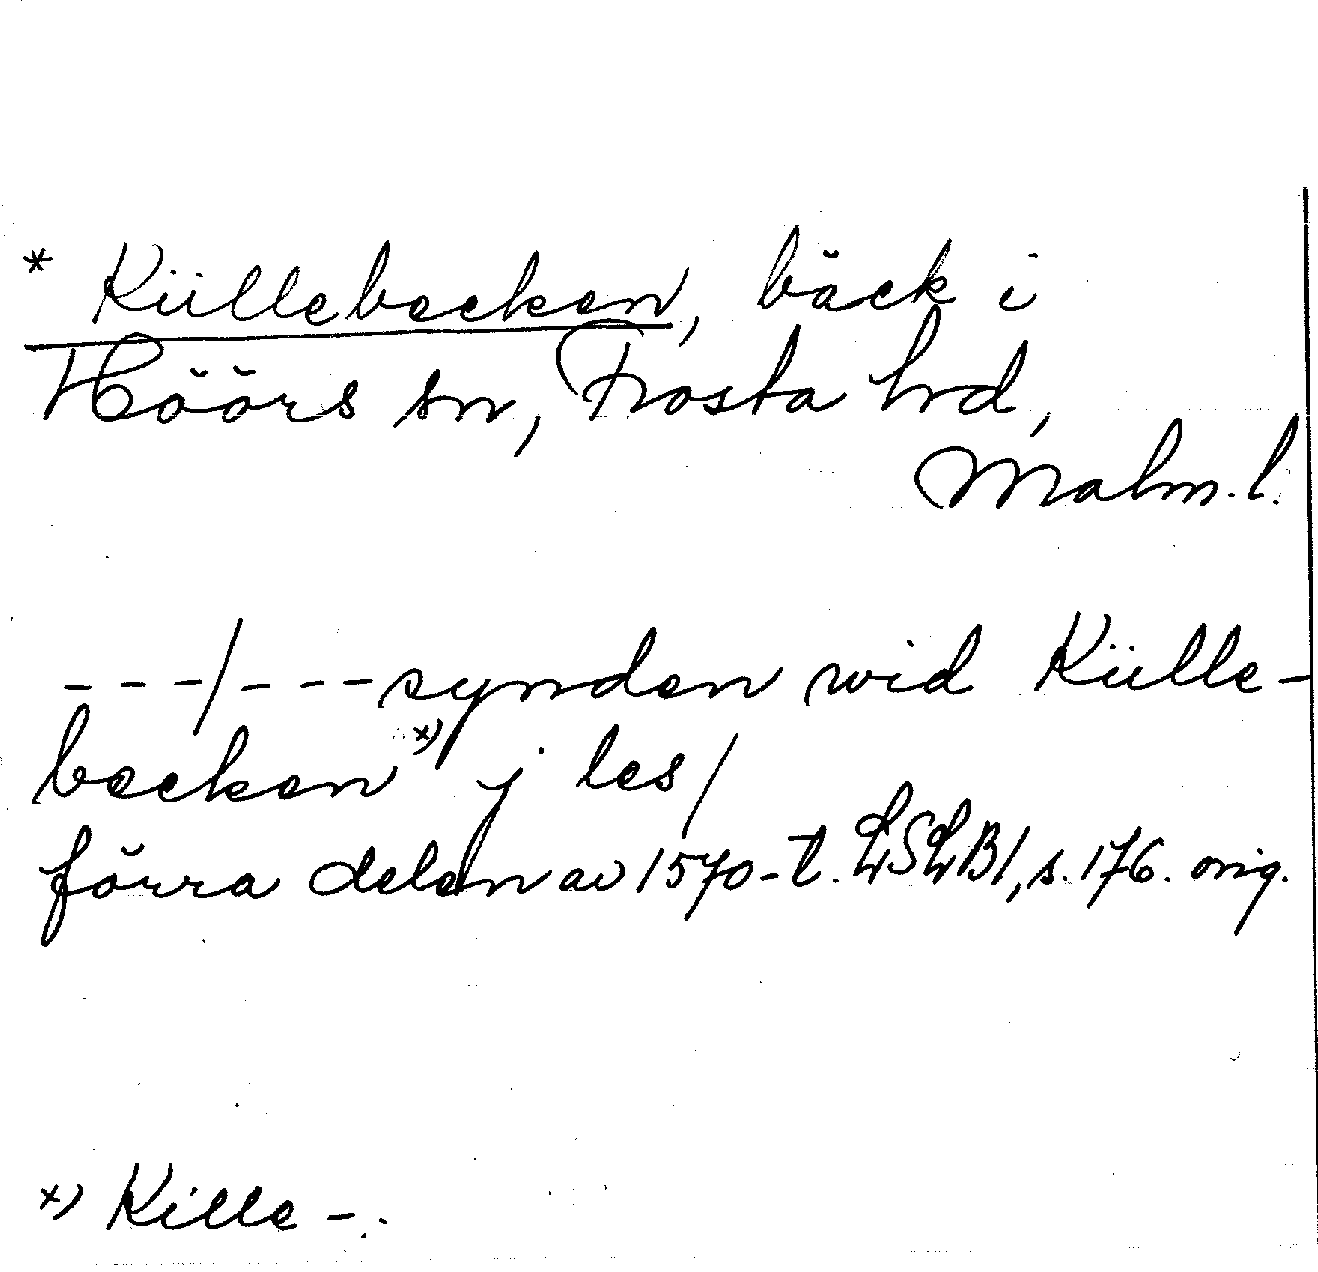 * Küllebecken, bäck i
Höörs sn, Frosta hrd,
Malm.l.
---/---synden wid Külle-
becken x) j les/
förra delen av 1570-t. LSLB1, s.176. orig.
x) Kille-.